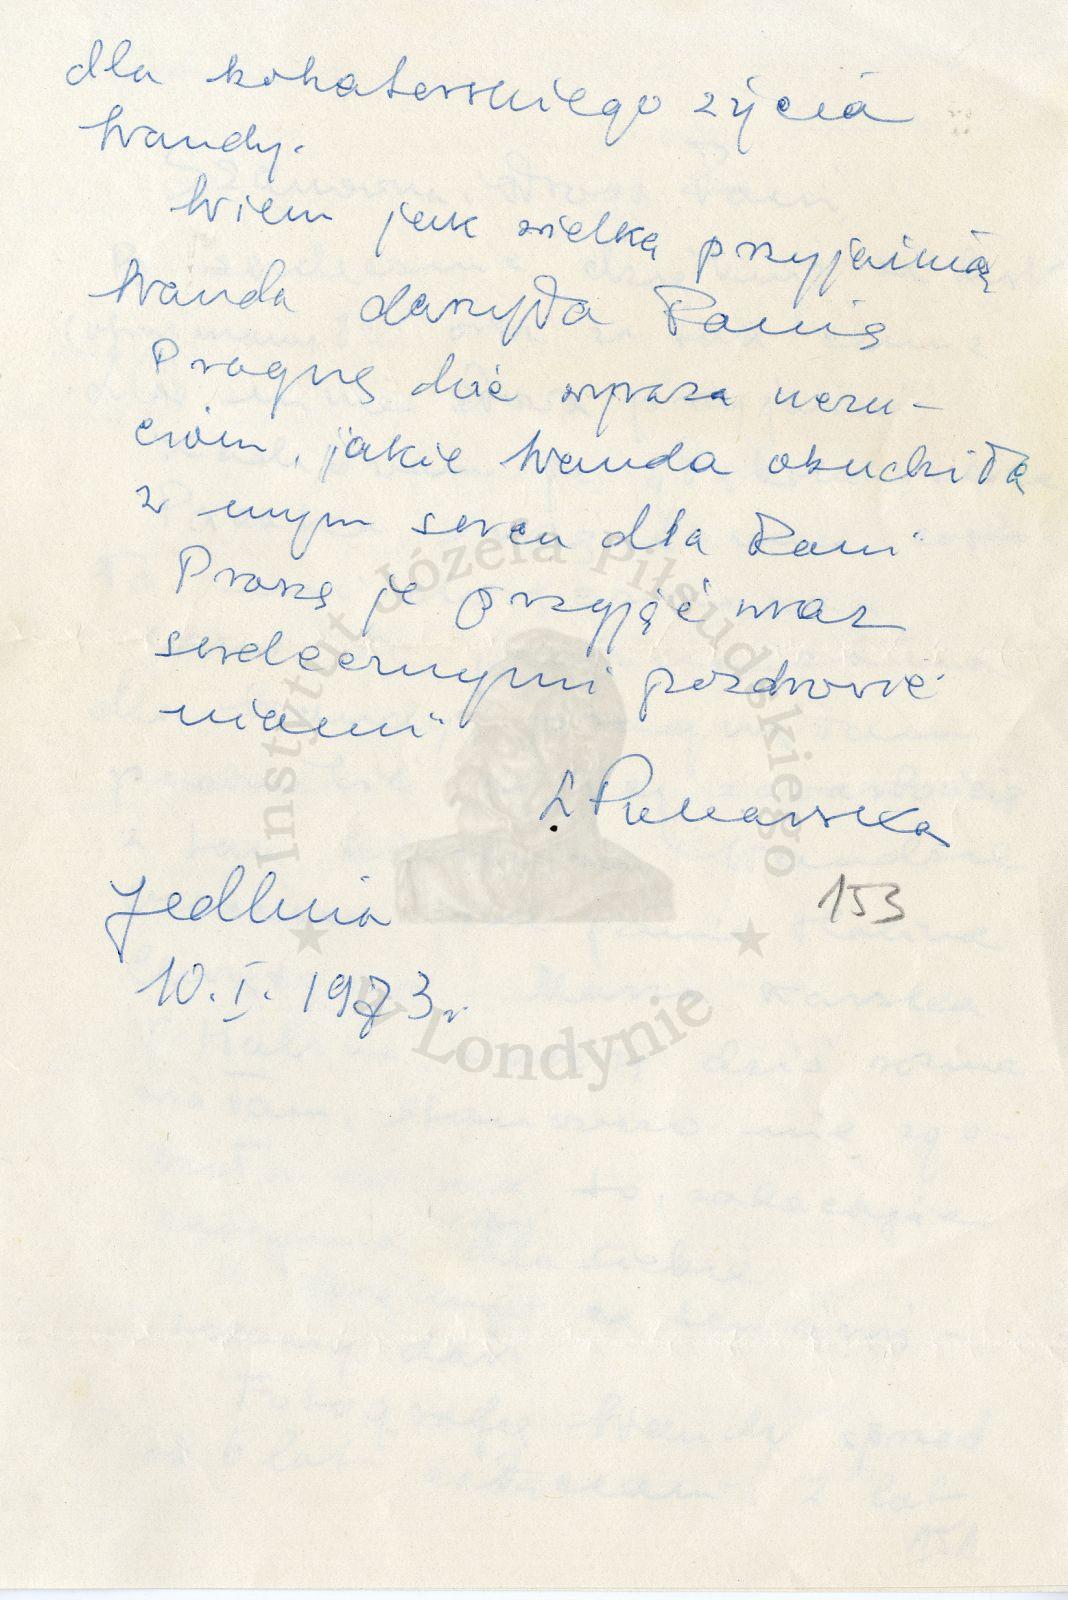 dla bohaterskiego życia
Wandy.
Wiem jak wielką przyjaźnią
Wanda darzyła Panią
Pragnę dać wyraz uczu-
ciom, jakie Wanda obudziła
w mym sercu dla Pani
Proszę je przyjąć wraz
serdecznymi pozdrowie-
niami
Jedlnia
153
10. I. 1973 r.
Instytut Józefa Piłsudskiego
w Londynie